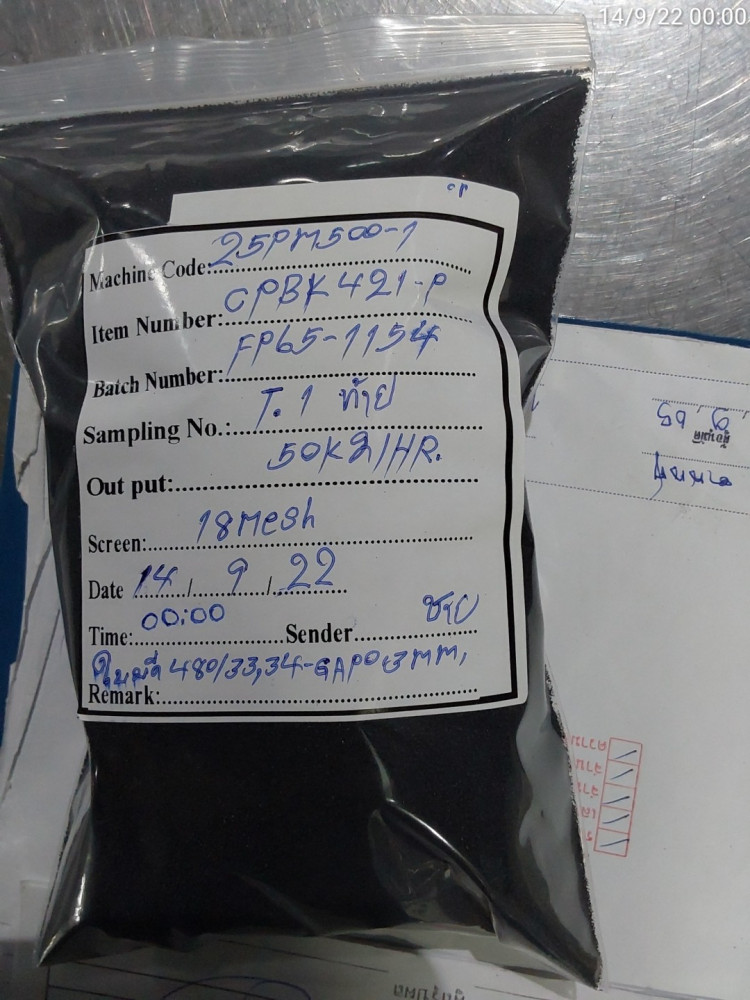 14/9/22 00:00
Machine Code: 25PM500-1
Item Number: CPBK421-P
Batch Number: FP65-1154
Sampling No.: T.1 ท้าย
Out put: 50Kg/HR.
Screen: 18Mesh
Date 14 / 9 / 22
Time: 00:00 Sender ชาย
ใบมีด 480/33,34-GAP0.3MM,
Remark: